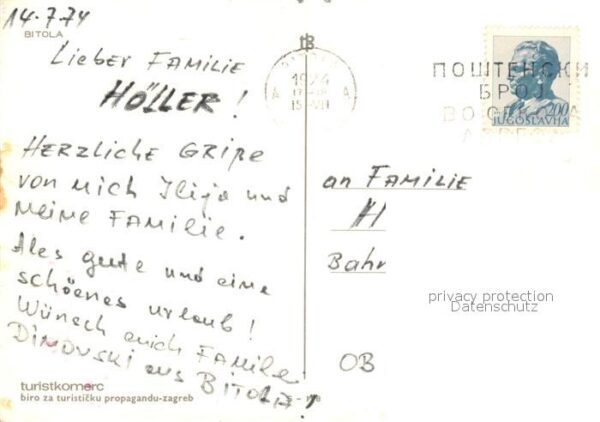 14-7-74
BITOLA
Lieber FAMILIE
HÖLLER!
HERZLICHE GRIPE
von mich Ilija und
meine FAMILIE.
Ales gute und eine
schöenes urlaub!
Wünsch euich FAMILIE
DIMOVSKI aus BITOLA!
turistkomerc
biro za turističku propagandu-zagreb
1974
15-VII
ПОШТЕНСКИ
БРОЈ
200
JUGOSLAVIJA
an FAMILIE
H
Bahr
privacy protection
Datenschutz
OB